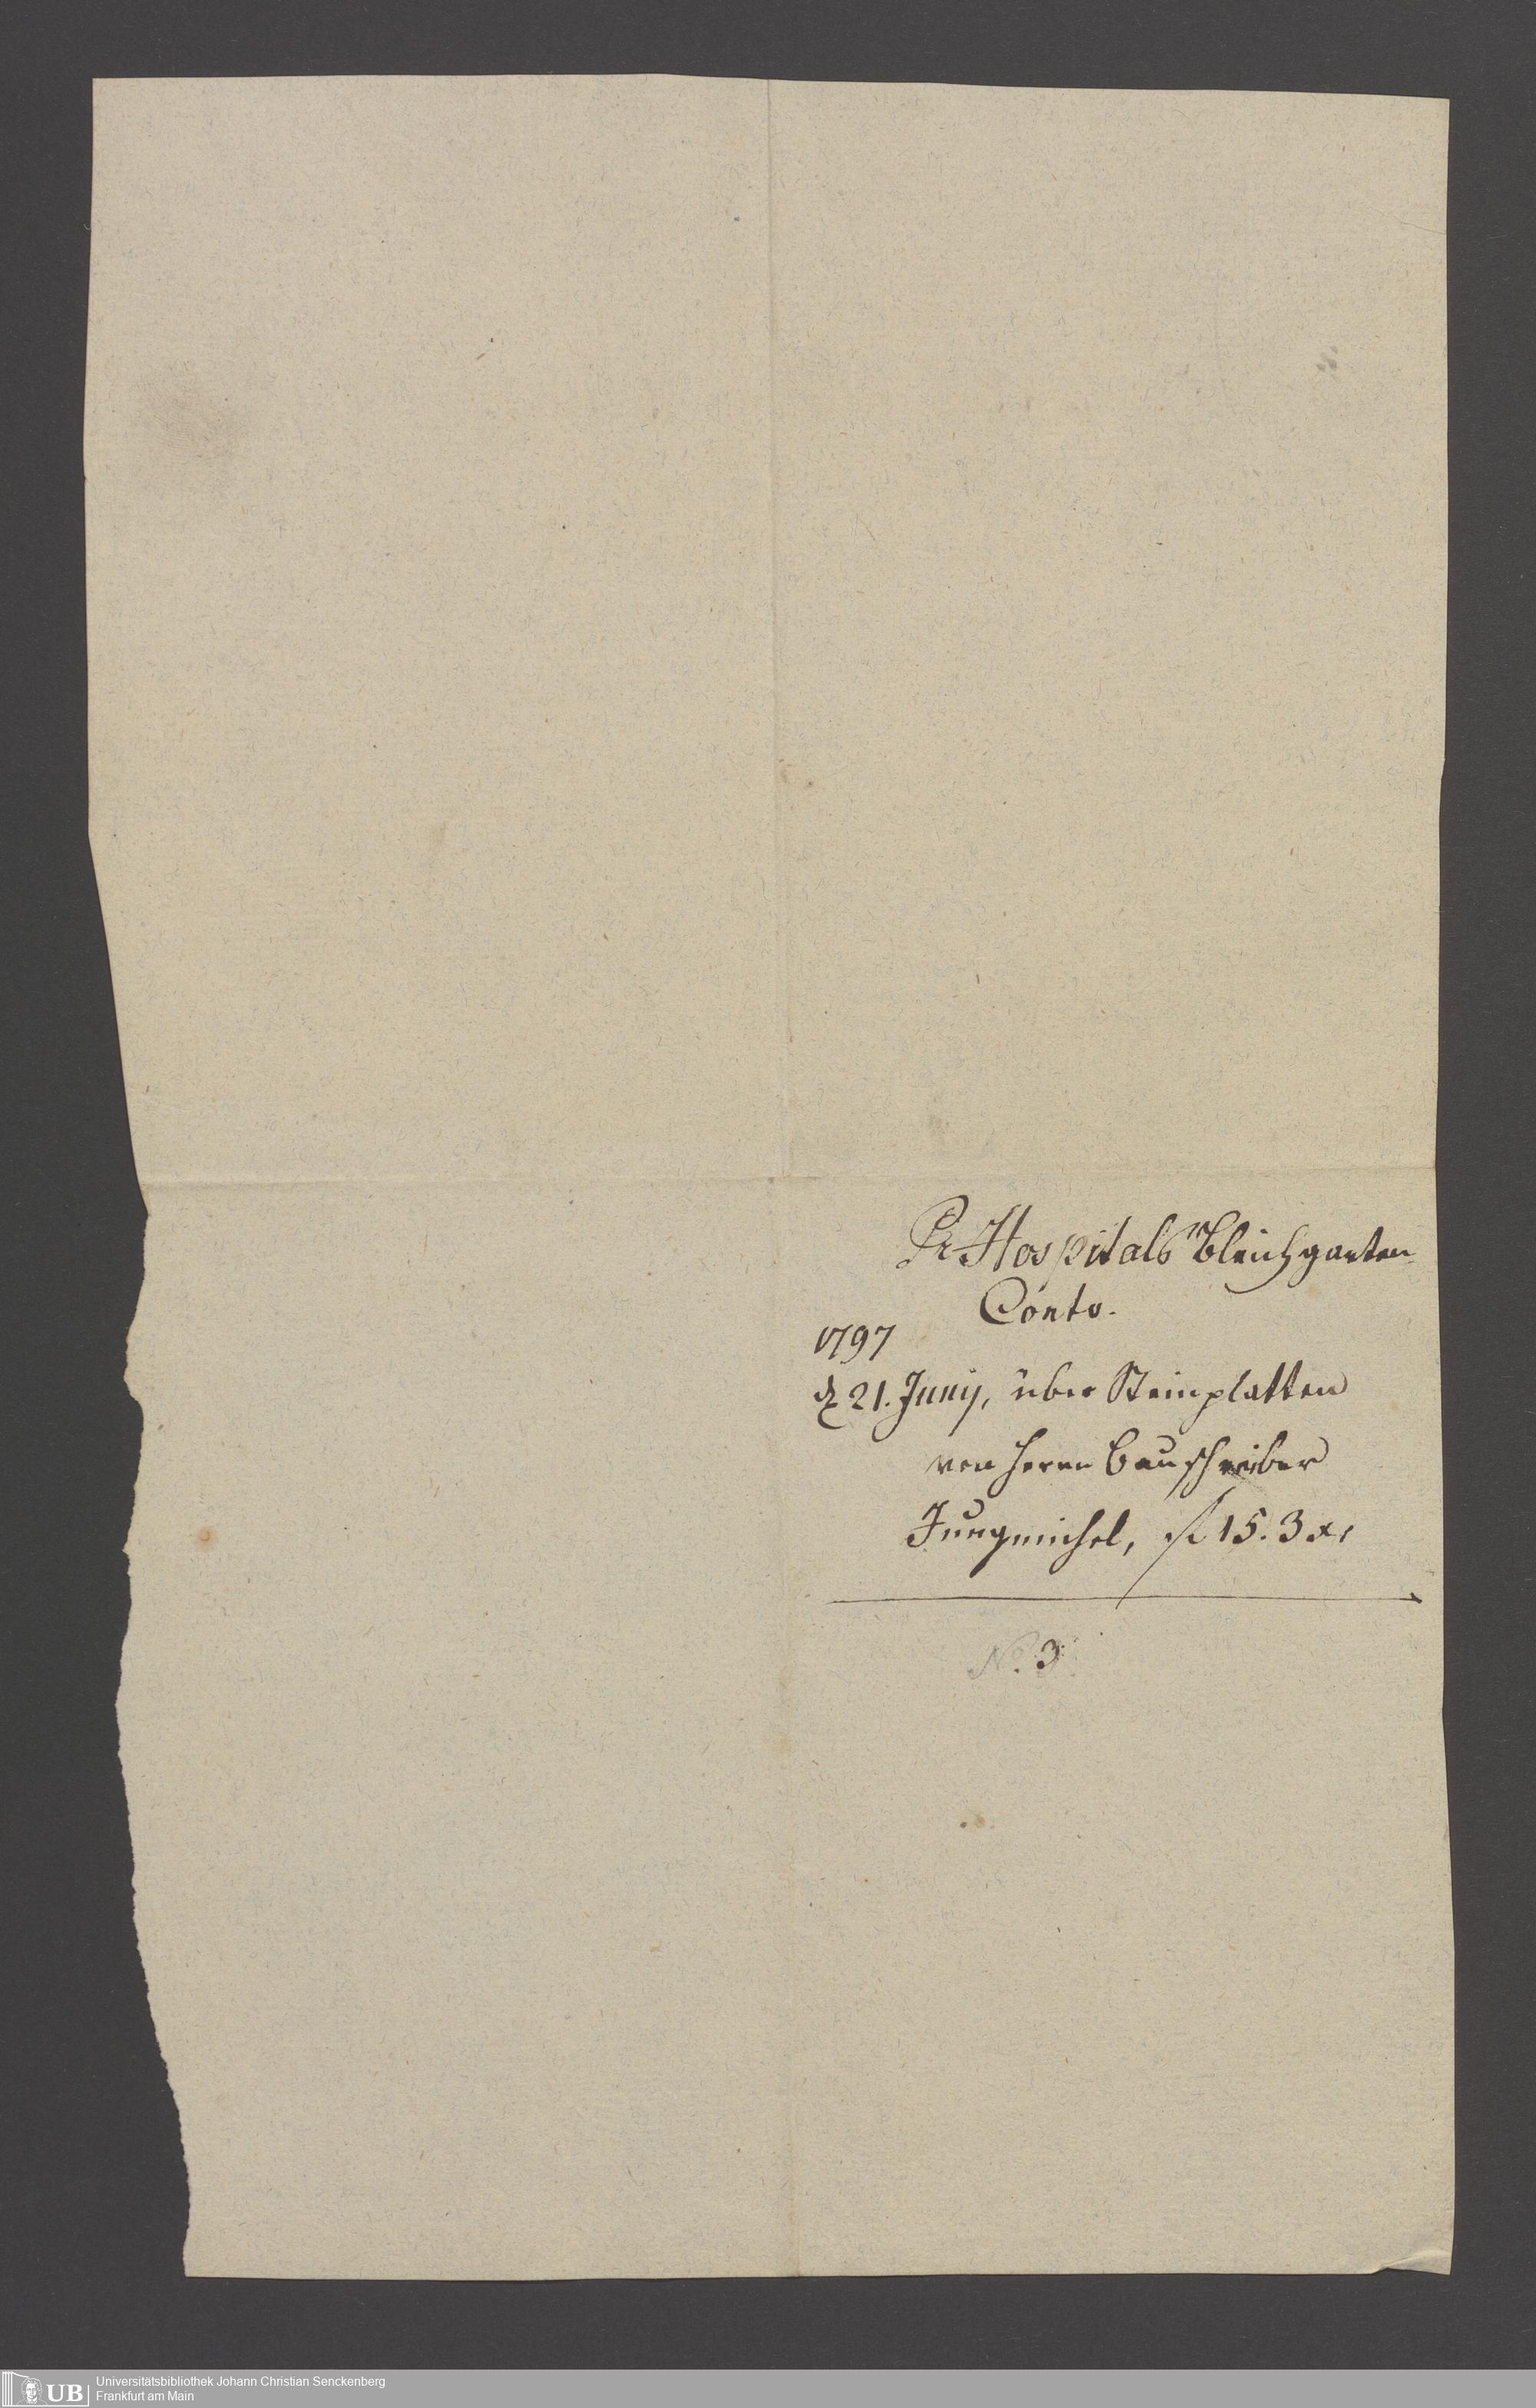 Pr Hospitals Bleichgarten
Conto.
1797
d. 21. Junij, über Steinplatten
von Herrn Bauschreiber
Jungmichel, f 15. 3 xr
No. 3
UB Universitätsbibliothek Johann Christian Senckenberg
Frankfurt am Main